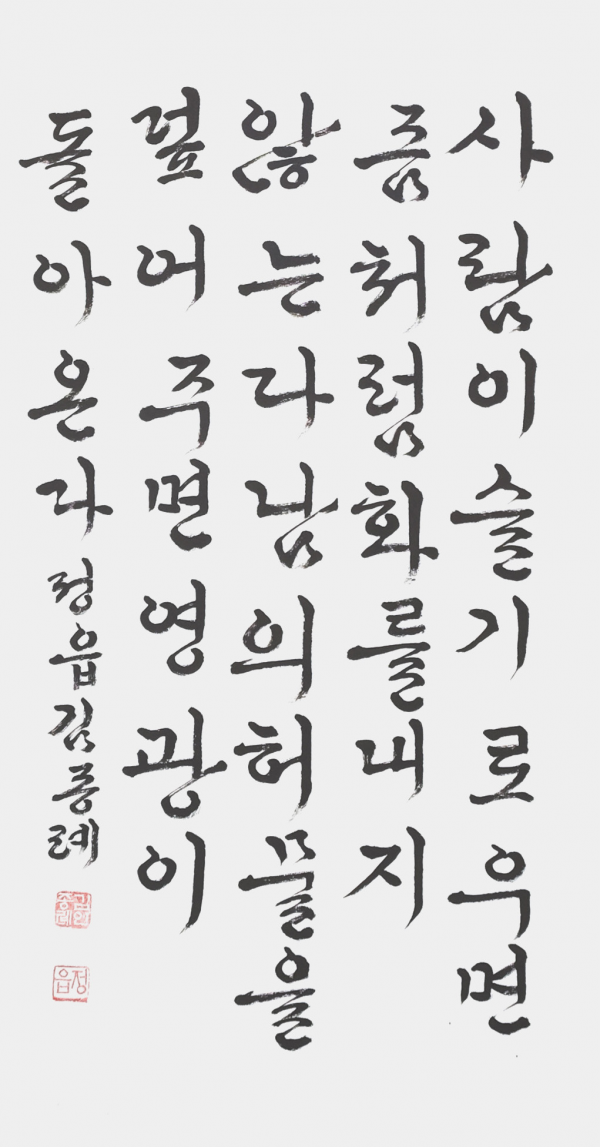 사람이슬기로우면
좀처럼화를내지
않는다남의허물을
덮어주면영광이
돌아온다정읍김종례
정읍